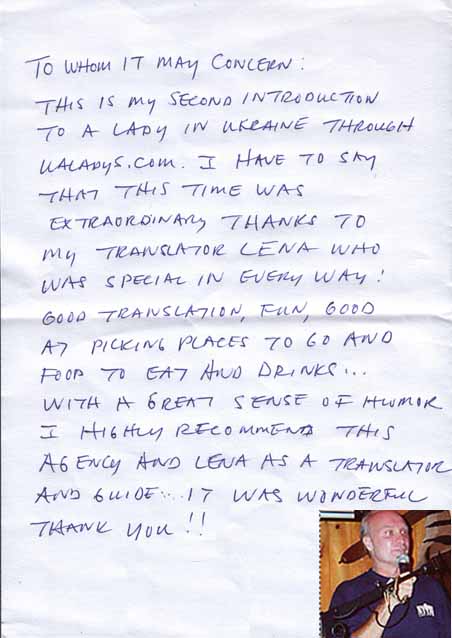 TO WHOM IT MAY CONCERN:
THIS IS MY SECOND INTRODUCTION
TO A LADY IN UKRAINE THROUGH
UALADYS.COM. I HAVE TO SAY
THAT THIS TIME WAS
EXTRAORDINARY THANKS TO
MY TRANSLATOR LENA WHO
WAS SPECIAL IN EVERY WAY!
GOOD TRANSLATION, FUN, GOOD
AT PICKING PLACES TO GO AND
FOOD TO EAT AND DRINKS...
WITH A GREAT SENSE OF HUMOR
I HIGHLY RECOMMEND THIS
AGENCY AND LENA AS A TRANSLATOR
AND GUIDE... IT WAS WONDERFUL
THANK YOU!!